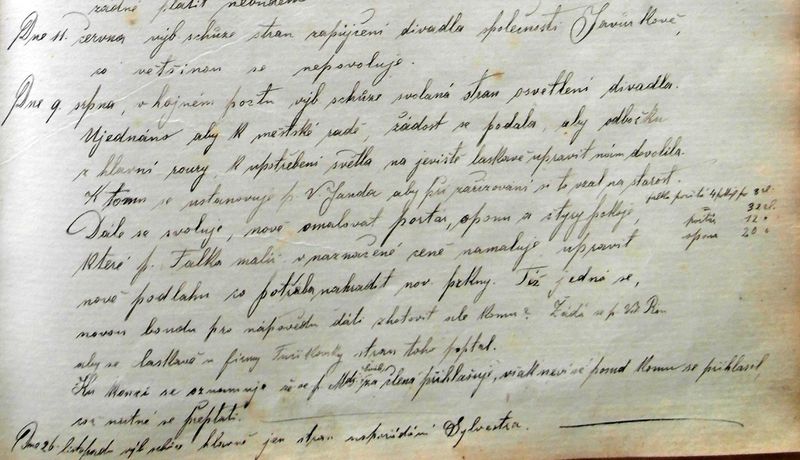 žádné platit nebudem
Dne 11. června výb schůze stran zapůjčení divadla společnosti Javůrkově,
což většinou se nepovoluje.
Dne 9. srpna, v hojném počtu výb schůze svolaná stran osvetlení divadla.
Ujednáno aby k městské radě, žádost se podala, aby odbočku
z hlavní roury, k upotřebení světla na jeviště laskavě upravit nám dovolila.
K tomu se ustanovuje p. V. Janda aby při zařizování si to vzal na starost.
Dále se svoluje, nově omalovat portál, oponu a čtyry pokoje,
falka počítá 4 pokoje po 8 zl.
= 32 zl.
portál 12 "
opona 20 "
které p. Falka malíř v naznačené ceně namaluje upravit
nově podlahu co potřeba nahradit nov. prkny. Též jedná se,
novou boudu pro nápovědu dáti zhotovit ale komu? Žádá se p.
aby se laskavě u firmy stran toho poptal.
Ku konci se oznamuje že se p. za člena přihlašuje, však neví se posud komu se přihlásil,
což nutné se přeptati.
Dne 26. listopadu výb schůze hlavně jen stran uspořádání Sylvestra.